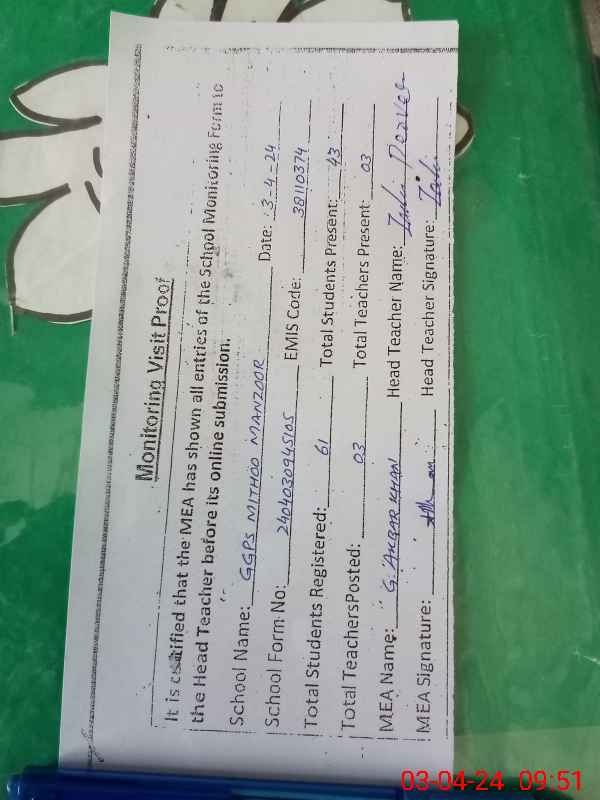 Monitoring Visit Proof
It is certified that the MEA has shown all entries of the School Monitoring Form to
the Head Teacher before its online submission.
School Name: GGPS MITHOO MANZOOR Date: 3-4-24
School Form No: 2404030945105 EMIS Code: 38110374
Total Students Registered: 61 Total Students Present: 43
Total TeachersPosted: 03 Total Teachers Present: 03
MEA Name: G. AKBAR KHAN Head Teacher Name:
MEA Signature: Head Teacher Signature:
03-04-24 09:51